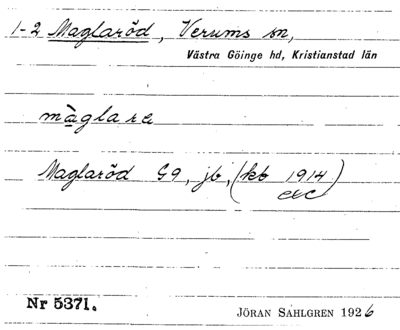 1-2 Maglaröd, Verums sn,
Västra Göinge hd, Kristianstad län
màglare
Maglaröd G9, jb, (kb 1914)
etc
Nr 5371.
JÖRAN SAHLGREN 1926